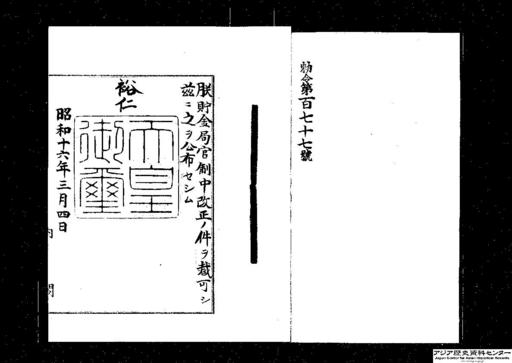 勅令第百七十七號
朕貯金局官制中改正ノ件ヲ裁可シ
茲ニ之ヲ公布セシム
裕仁
天皇
御璽
昭和十六年三月四日
内閣
アジア歴史資料センター
Japan Center for Asian Historical Records